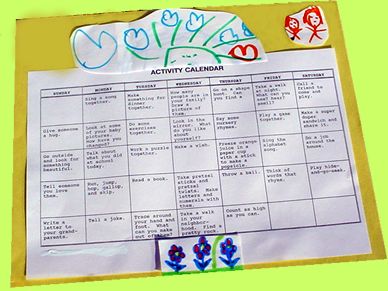 ACTIVITY CALENDAR
SUNDAY MONDAY TUESDAY WEDNESDAY THURSDAY FRIDAY SATURDAY
Sing a song
together.
Make
something for
dinner
together.
How many
people are in
your family?
Draw a
picture of
them.
Go on a shape
hunt. Can
you find a
Take a walk
at night.
What can you
see? hear?
smell?
Call a friend
to come and
play.
Give someone
a hug.
Look at some
of your baby
pictures.
How have you
changed?
Do some
exercises
together.
Look in the
mirror. What
do you like
about
yourself?
Say some
nursery
rhymes.
Play a game
together.
Make a super
duper
sandwich and
share it.
Go outside
and look for
something
beautiful.
Talk about
what you did
at school
today.
Work a puzzle
together.
Make a wish.
Freeze orange
juice in a
paper cup
with a stick
to make a
popsicle.
Sing the
alphabet
song.
Do a job
around the
house.
Tell someone
you love
them.
Run, jump,
hop, gallop,
and skip.
Read a book.
Take pretzel
sticks and
pretzel
twists. Make
letters and
numerals with
them.
Throw a ball.
Think of
words that
rhyme.
Play hide-
and-go-seek.
Write a
letter to
your grand-
parents.
Tell a joke.
Trace around
your hand and
foot. What
can you make
out of
Take a walk
in your
neighbor-
hood. Find a
pretty rock.
Count as high
as you can.